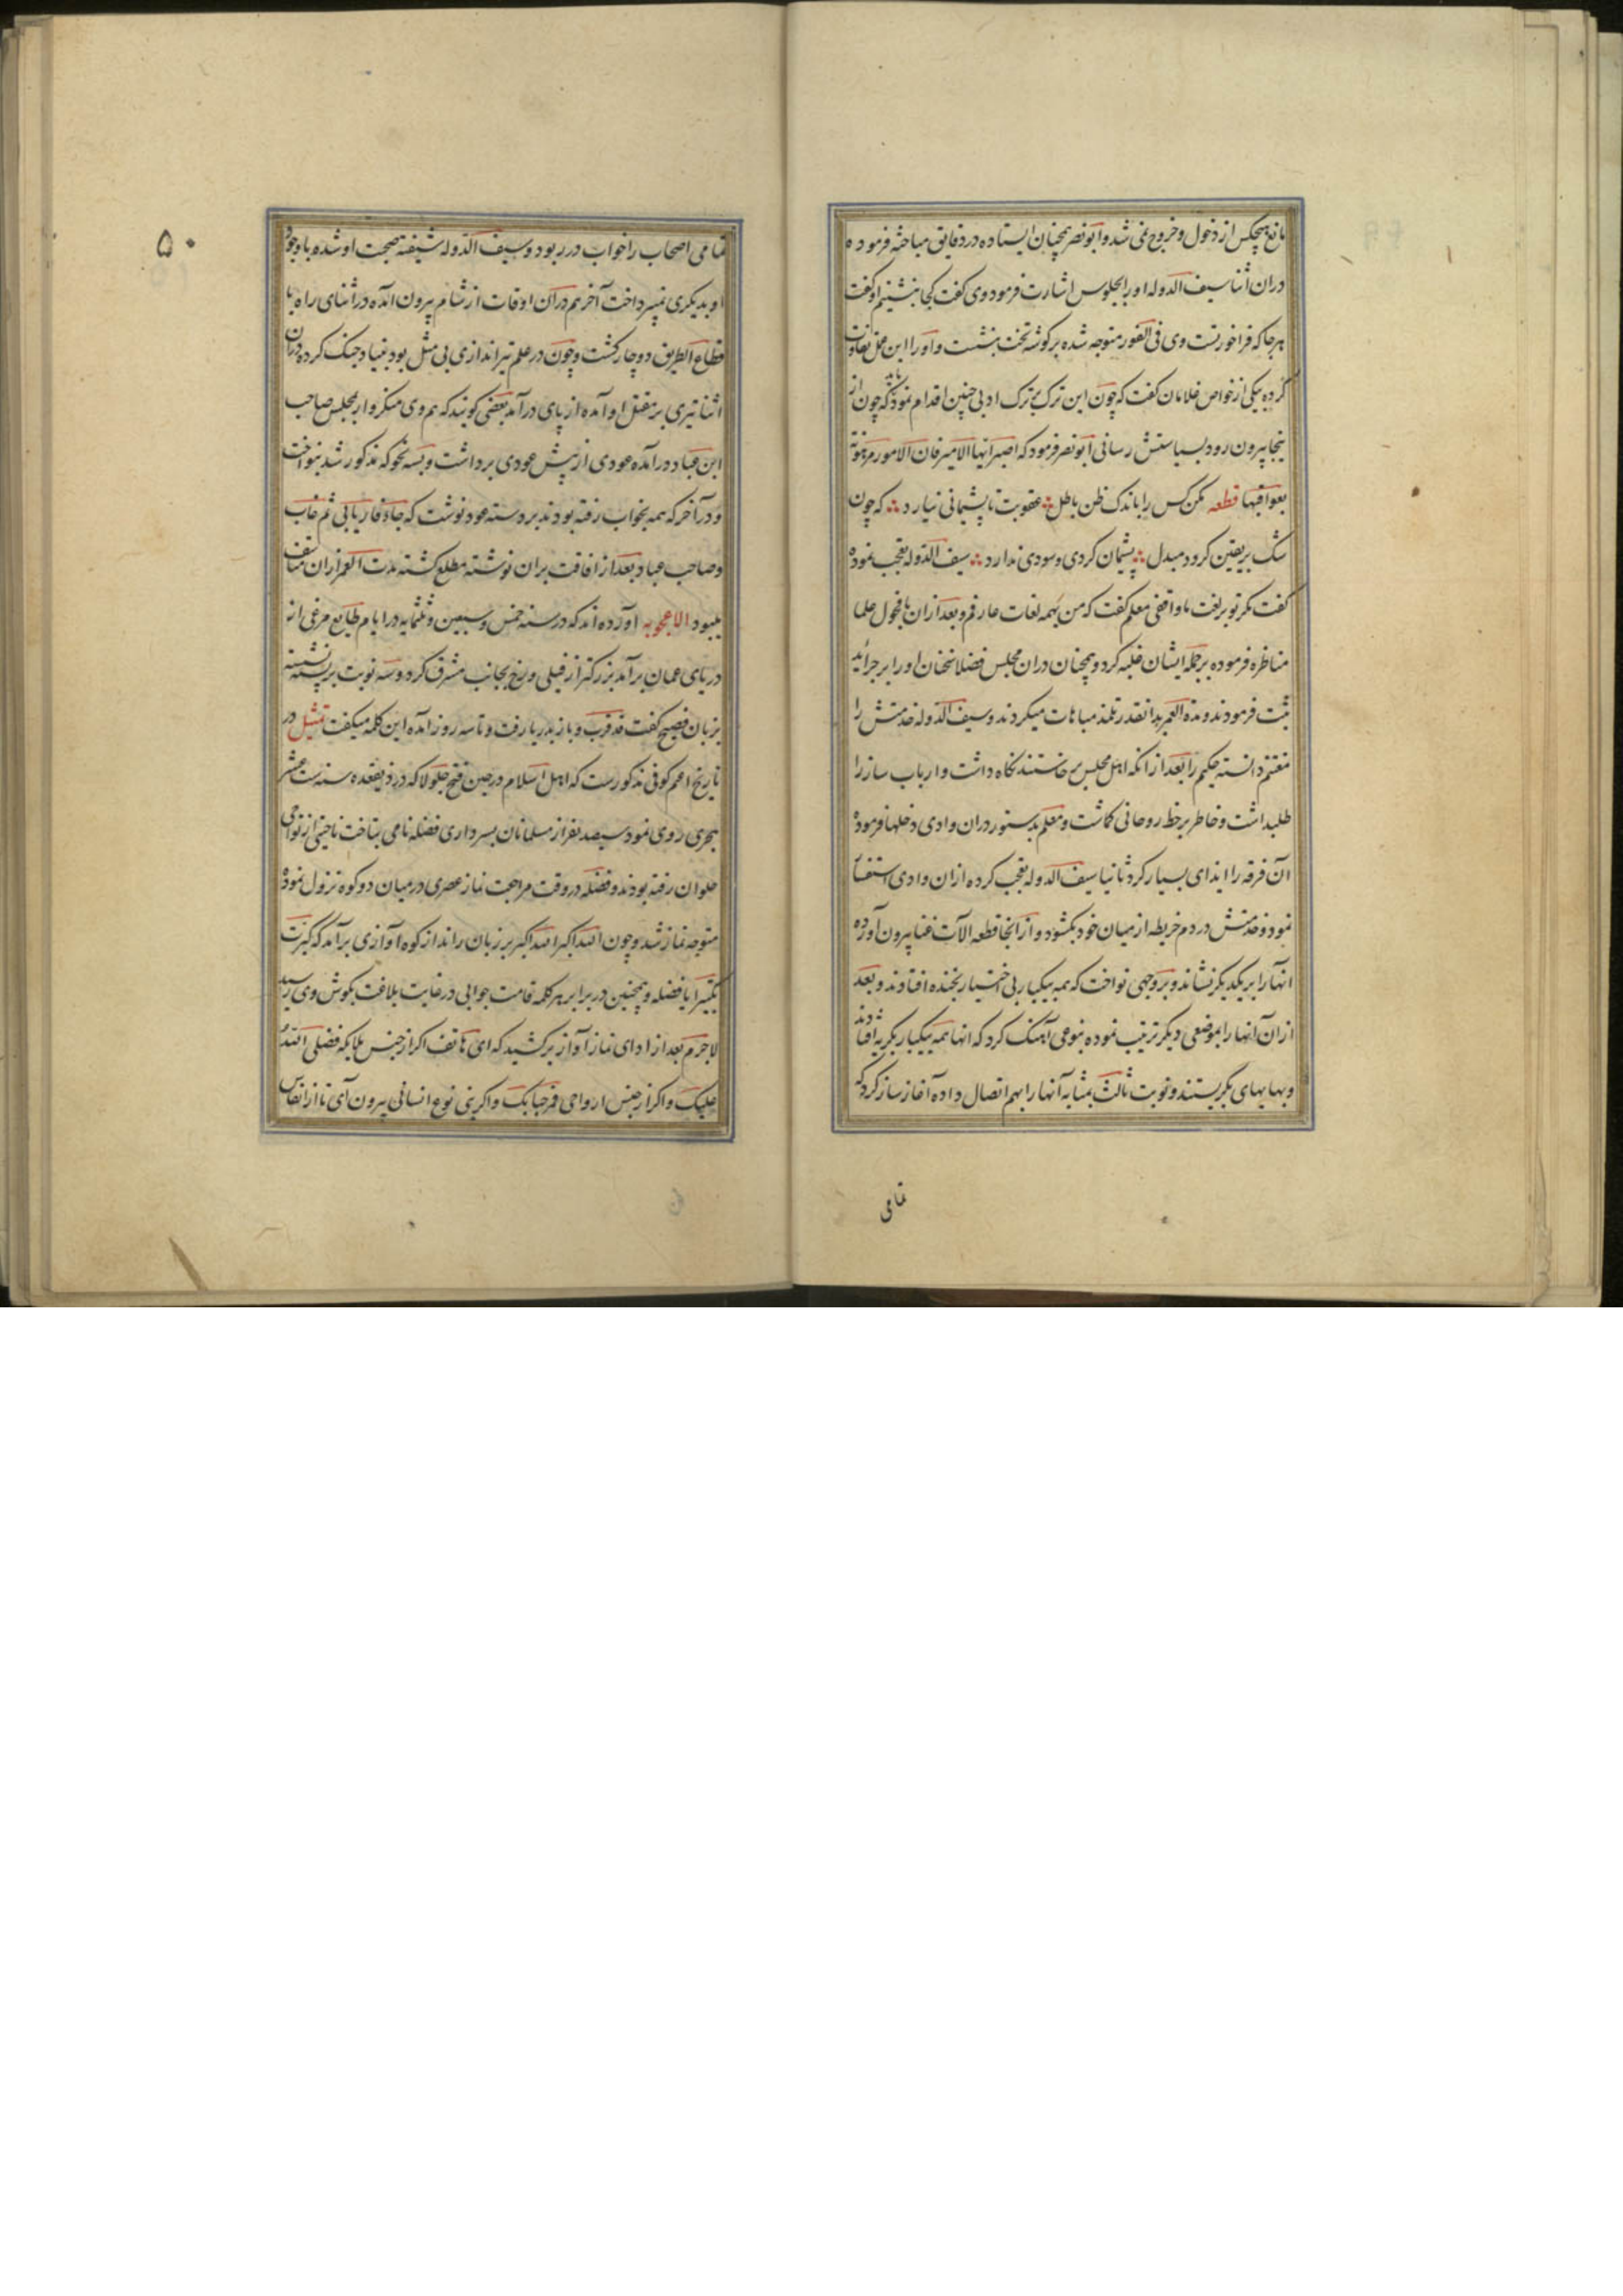 مانع هیچکس از دخول و خروج نمی شد و ابونصر همچنان ایستاده در دقایق مباحثه فرموده
دران اثنا سیف الدوله او را بجلوس اشارت فرمود وی گفت کجا بنشینم او گفت
هرجا که فراخور تست وی فی الفور متوجه شده بر گوشه تخت بنشست و او را این عمل تفاوت
کرده بیکی از خواص غلامان گفت که چون این ترک بر ترک ادبی چنین اقدام نمود باید که چون از
ینجا بیرون رود بسیاستش رسانی ابونصر فرمود که اصبر ایها الامیر فان الامور مرهونة
بعواقبها قطعه مکن کس را باندک ظن باطل عقوبت تا پشیمانی نیارد که چون
شک بر یقین گردد مبدل پشیمان گردی و سودی ندارد سیف الدوله تعجب نموده
گفت مگر تو بر لغت ما واقفی معلم گفت که من بهمه لغات عارفم و بعد ازان با فحول علما
مناظره فرموده بر جمله ایشان غلبه کرد و همچنان دران مجلس فضلا سخنان او را بر جراید
ثبت فرمودند و مدة العمر بدانقدر تلمذ مباهات میکردند و سیف الدوله خدمتش را
مغتنم دانسته حکیم را بعد از انکه اهل مجلس بر خاستند نگاه داشت و ارباب ساز را
طلبداشت و خاطر بر حظ روحانی گماشت و معلم بدستور دران وادی دخلها فرموده
آن فرقه را ایذای بسیار کرد ثانیا سیف الدوله تعجب کرده ازان وادی استفسا
نمود و خدمتش در دم خریطه از میان خود بگشود و از انجا قطعه الآت غنا بیرون آورده
انها را بر یکدیگر نشاند و بر وجهی نواخت که همه بیکبار بی اختیار بخنده افتادند و بعد
ازان آنها را بموضعی دیگر ترتیب نموده بنوعی آهنگ کرد که انها همه بیکبار بگریه افتادند
و بهایهای بگریستند و نوبت ثالث بمثابه آنها را بهم اتصال داده آغاز ساز کرد که
تمامی
۵۰
تمامی اصحاب را خواب در ربود و سیف الدوله شیفته صحبت او شده با وجود
او بدیگری نمیپرداخت آخر هم دران اوقات از شام بیرون آمده در اثنای راه با
قطاع الطریق دوچار گشت و چون در علم تیراندازی بی مثل بود بنیاد جنگ کرده دران
اثنا تیری بر مقتل او آمده از پای درآمد بعضی گویند که هم وی منکروار بمجلس صاحب
ابن عباد درآمده عودی از پیش عودی برداشت و بسه نحو که مذکور شد بنواخت
و در آخر که همه بخواب رفته بودند بر دسته عود نوشت که جاء فاریابی ثم غاب
و صاحب عباد بعد از افاقت بران نوشته مطلع گشته مدت العمر ازان متاسف
میبود الاعجوبه آورده اند که در سنه خمس و سبعین و ثلثمایه در ایام طایع مرغی از
دریای عمان برآمد بزرگتر از فیلی و رخ بجانب مشرق کرد و سه نوبت بر پشته نشسته
بزبان فصیح گفت قد قرب و باز بدریا رفت و تا سه روز آمده این کلمه میگفت تمثیل در
تاریخ اعثم کوفی مذکورست که اهل اسلام در حین فتح جلولا که در ذیقعده سنه ست عشر
هجری روی نمود سیصد نفر از مسلمانان بسرداری فضله نامی بتاخت ناحیتی از نواحی
حلوان رفته بودند و فضله در وقت مراجعت نماز عصری در میان دو کوه نزول نموده
متوجه نماز شد و چون الله اکبر الله اکبر بر زبان راند از کوه آوازی برآمد که کبرت
تکبیرا یا فضله و همچنین در برابر هر کلمه قامت جوابی در غایت بلاغت بگوش وی رسید
لاجرم بعد از ادای نماز آواز برکشید که ای هاتف اگر از جنس ملایکه فضلی الله
علیک و اگر از جنس ارواحی فمرحبا بک و اگر بنی نوع انسانی بیرون آی تا از انفاس